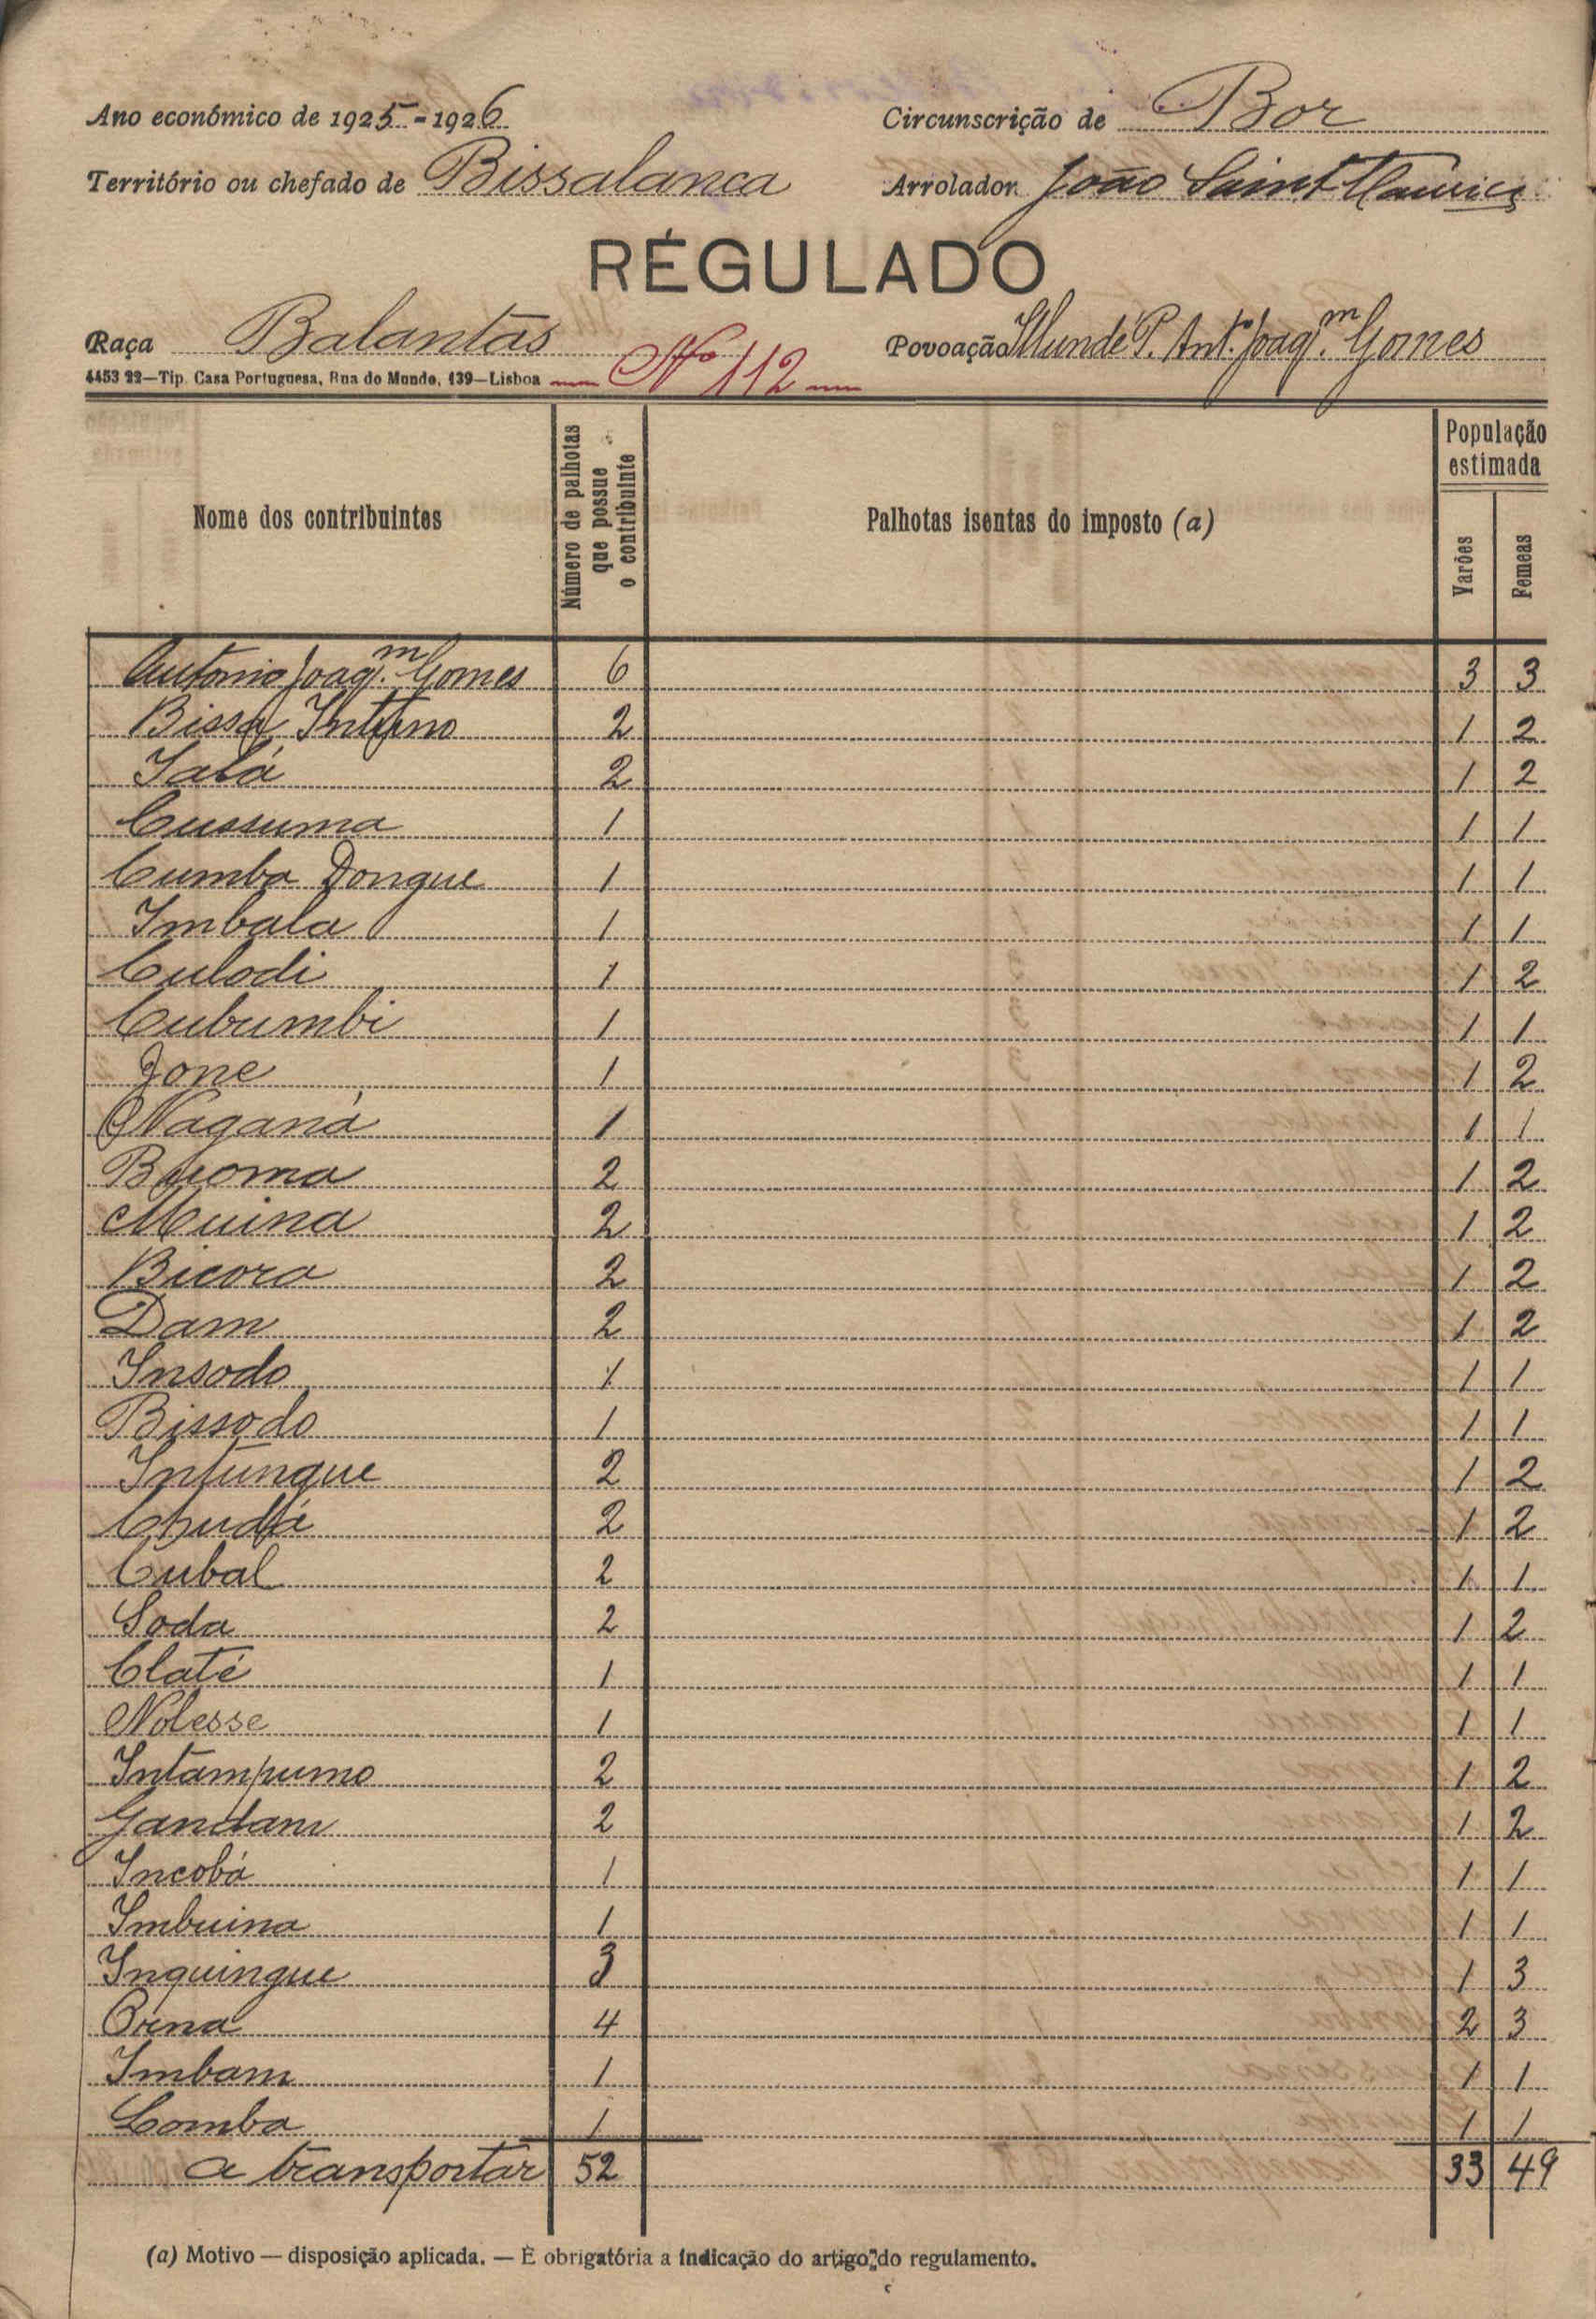 Ano económico de 1925-1926
Circunscrição de Bor
Território ou chefado de Bissalanca
Arrolador João Saint Maurice
RÉGULADO
Raça Balantas
Nº 112
Povoação P. Ant.º Joaq.m Gomes
4453 22—Tip. Casa Portuguesa, Rua do Mundo, 139—Lisboa
Nome dos contribuintes
Número de palhotas que possue o contribuinte
Palhotas isentas do imposto (a)
População estimada
Varões
Femeas
Antonio Joaq.m Gomes 6 3 3
Bissa 2 1 2
Ialá 2 1 2
Cussuma 1 1 1
Cumba Dongue 1 1 1
Imbala 1 1 1
Culodi 1 1 2
Cubumbi 1 1 1
Jone 1 1 2
Naganá 1 1 1
Buoma 2 1 2
Muina 2 1 2
Bicora 2 1 2
Dam 2 1 2
Insodo 1 1 1
Bissodo 1 1 1
Intungue 2 1 2
2 1 2
Cubal 2 1 1
Soda 2 1 2
Claté 1 1 1
Nolesse 1 1 1
Intampumo 2 1 2
Gandam 2 1 2
Incobá 1 1 1
Imbuina 1 1 1
Inquingue 3 1 3
4 2 3
Imbam 1 1 1
Comba 1 1 1
a transportar 52 33 49
(a) Motivo — disposição aplicada. — É obrigatória a indicação do artigo do regulamento.